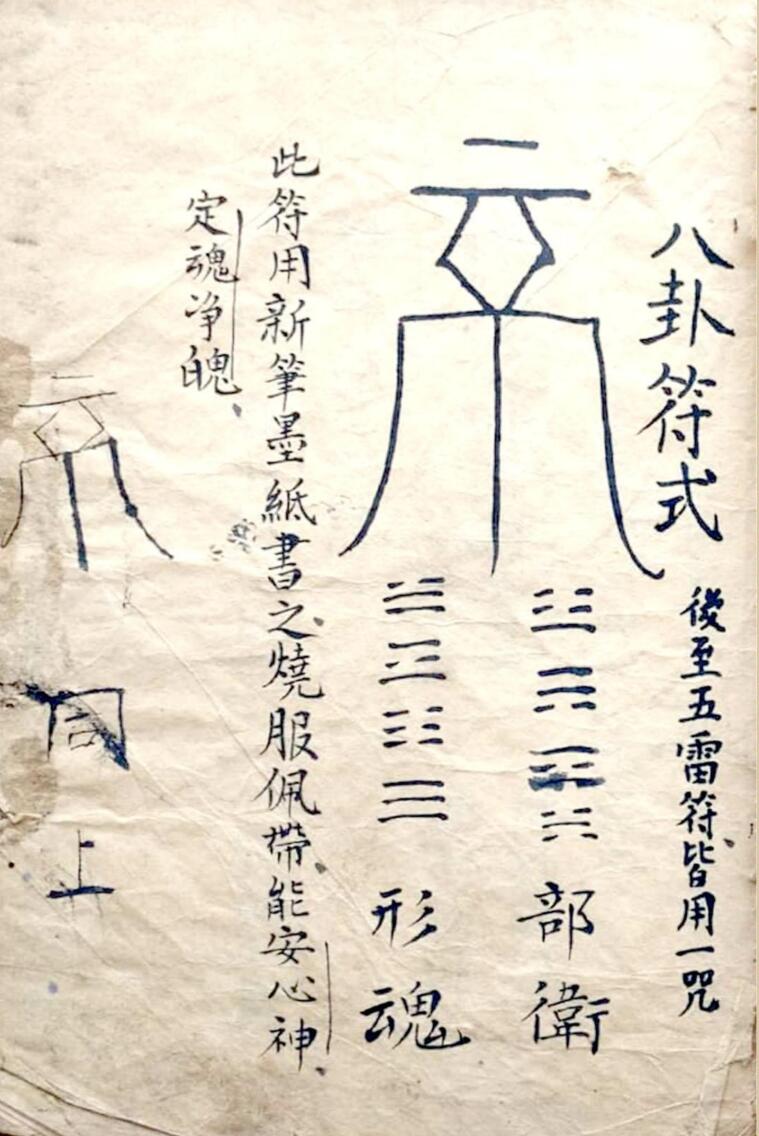 八卦符式 後至五雷符皆用一咒
部衛
形魂
此符用新筆墨紙書之燒服佩帶能安心神
定魂净魄
同上